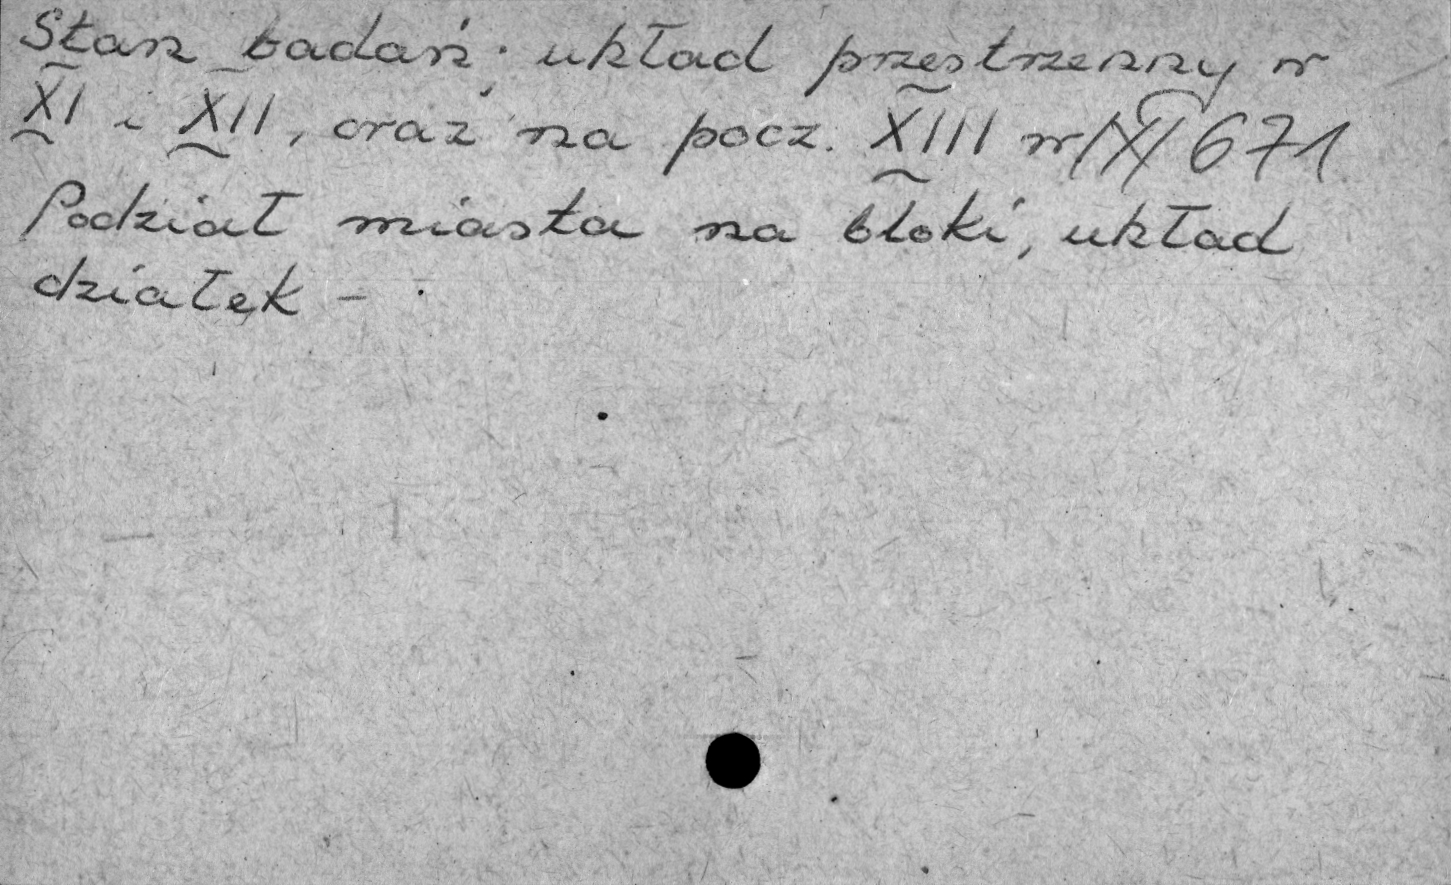 Stan badań: układ przestrzenny w
XI i XII, oraz na pocz. XIII w /X/ 671
Podział miasta na bloki, układ
działek -